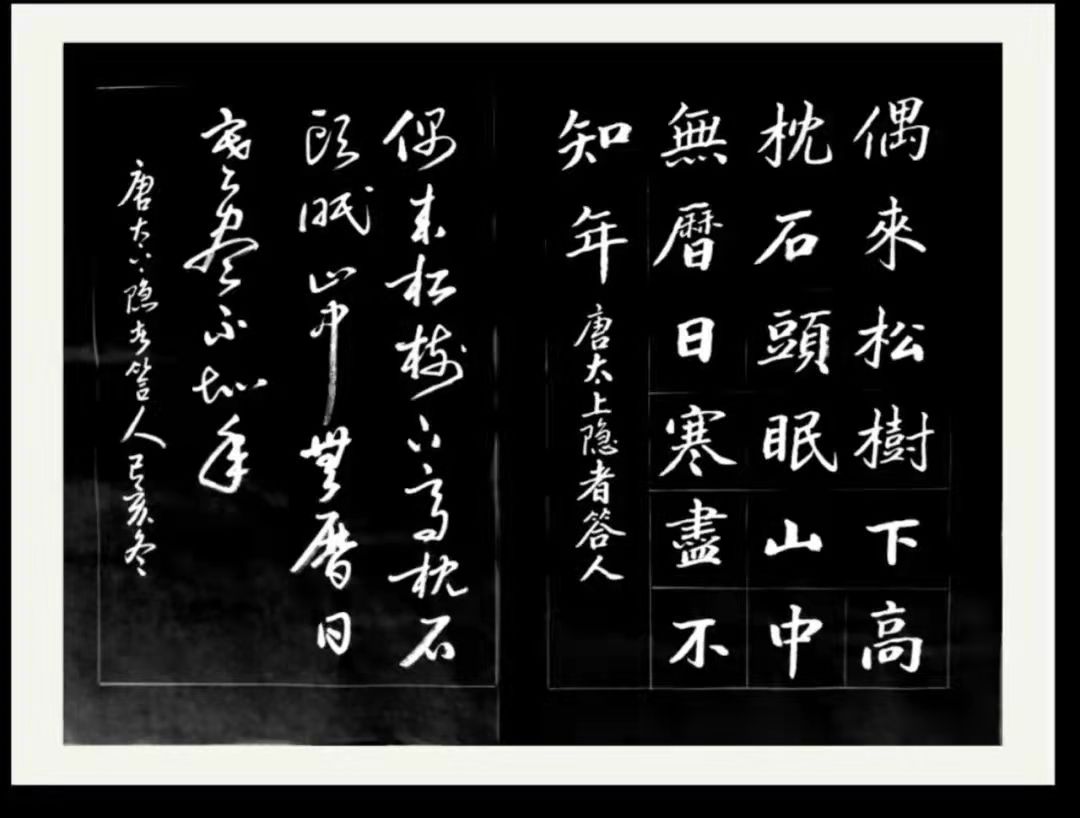 偶來松樹下高
枕石頭眠山中
無曆日寒盡不
知年
唐太上隐者答人
偶来松树下高枕石
頭眠山中無曆日
寒尽不知年
唐太上隐者答人己亥冬